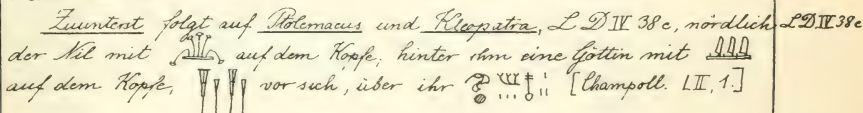 Zuunterst folgt auf Ptolemaeus und Kleopatra, L D IV 38c, nördlich L D IV 38c
der Nil mit auf dem Kopfe; hinter ihm eine Göttin mit
auf dem Kopfe, vor sich, über ihr [Champoll. LII, 1.]